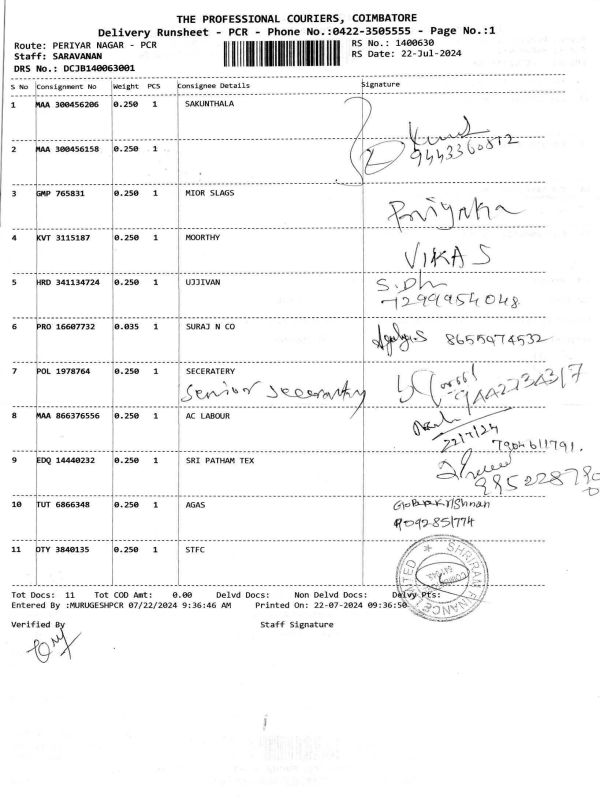 THE PROFESSIONAL COURIERS, COIMBATORE
Delivery Runsheet - PCR - Phone No.:0422-3505555 - Page No.:1
Route: PERIYAR NAGAR - PCR RS No.: 1400630
Staff: SARAVANAN RS Date: 22-Jul-2024
DRS No.: DCJB140063001
S No Consignment No Weight PCS Consignee Details Signature
1 MAA 300456206 0.250 1 SAKUNTHALA
2 MAA 300456158 0.250 1
9443360872
3 GMP 765831 0.250 1 MIOR SLAGS
Priyanka
4 KVT 3115187 0.250 1 MOORTHY
VIKAS
5 HRD 341134724 0.250 1 UJJIVAN
7299954048
6 PRO 16607732 0.035 1 SURAJ N CO
8655974532
7 POL 1978764 0.250 1 SECERATERY
Senior
8 MAA 866376556 0.250 1 AC LABOUR
22/7/24
7904611791.
9 EDQ 14440232 0.250 1 SRI PATHAM TEX
10 TUT 6866348 0.250 1 AGAS
Gopalkrishnan
9092851774
11 OTY 3840135 0.250 1 STFC
SHRIRAM FINANCE LIMITED
Tot Docs: 11 Tot COD Amt: 0.00 Delvd Docs: Non Delvd Docs: Delvy Pts:
Entered By :MURUGESHPCR 07/22/2024 9:36:46 AM Printed On: 22-07-2024 09:36:50
Verified By Staff Signature